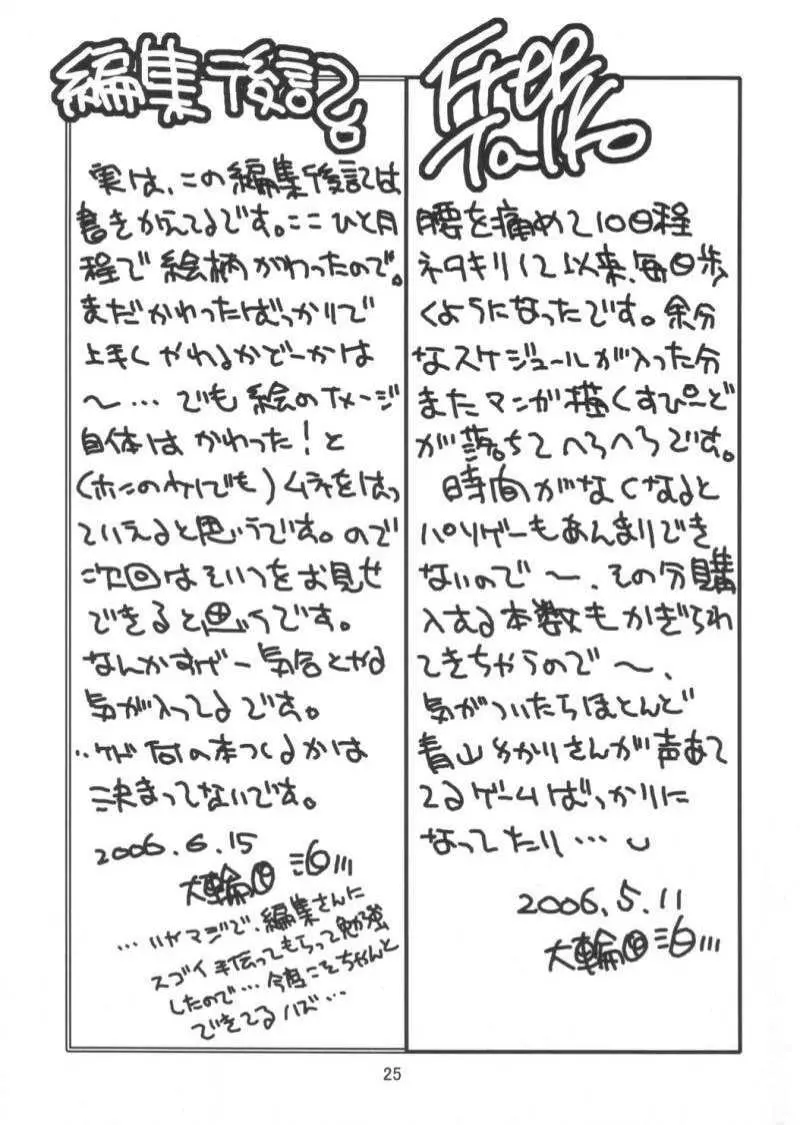 Free
Talk
腰を痛めて10日程
ネタキリして以来、毎日歩
くようになったです。余分
なスケジュールが入った分
またマンガ描くすぴーど
が落ちてへろへろです。
時間がなくなると
パソゲーもあんまりでき
ないので〜、その分購
入する本数もかぎられ
てきちゃうので〜、
気がついたらほとんど
青山ゆかりさんが声あて
てるゲームばっかりに
なってたり…
2006.5.11
編集後記
実は、この編集後記は
書きかえてるです。ここひと月
程で絵柄がわったので。
まだかわったばっかりで
上手くやれるかどーかは
〜…でも絵のイメージ
自体はかわった!と
(ホンのケドでも)ムネをはっ
ていえると思うです。ので
次回はそいつをお見せ
できると思うです。
なんかすげー気合とやる
気が入ってるです。
‥ケド何の本つくるかは
決まってないです。
2006.6.15
…いやマジで、編集さんに
スゴイ手伝ってもらって勉強
したので…今度こそちゃんと
できてるハズ…
25